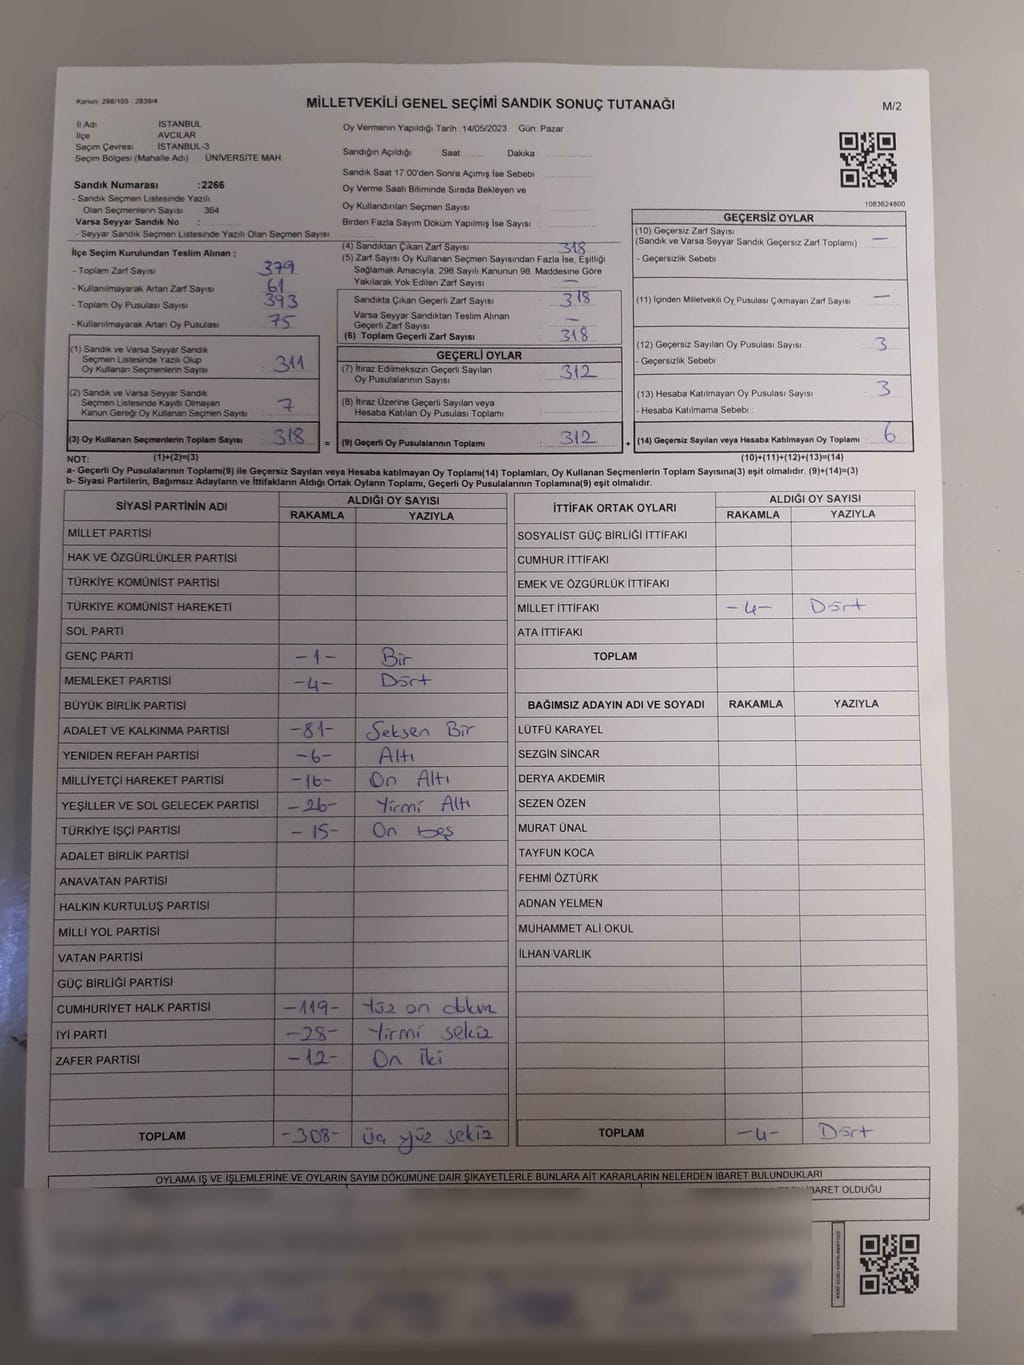 Kanun: 298/105 2839/4
MİLLETVEKİLİ GENEL SEÇİMİ SANDIK SONUÇ TUTANAĞI
M/2
İl Adı İSTANBUL
İlçe AVCILAR
Seçim Çevresi İSTANBUL-3
Seçim Bölgesi (Mahalle Adı) ÜNİVERSİTE MAH
Oy Vermenin Yapıldığı Tarih : 14/05/2023 Gün: Pazar
Sandığın Açıldığı Saat Dakika :
Sandık Saat 17:00'den Sonra Açımış İse Sebebi :
Oy Verme Saati Bitiminde Sırada Bekleyen ve
Oy Kullandırılan Seçmen Sayısı :
Birden Fazla Sayım Döküm Yapılmış İse Sayısı :
1083624800
Sandık Numarası :2266
- Sandık Seçmen Listesinde Yazılı
Olan Seçmenlerin Sayısı : 364
Varsa Seyyar Sandık No :
- Seyyar Sandık Seçmen Listesinde Yazılı Olan Seçmen Sayısı
İlçe Seçim Kurulundan Teslim Alınan ;
- Toplam Zarf Sayısı 379
- Kullanılmayarak Artan Zarf Sayısı 61
- Toplam Oy Pusulası Sayısı 393
- Kullanılmayarak Artan Oy Pusulası 75
(1) Sandık ve Varsa Seyyar Sandık
Seçmen Listesinde Yazılı Olup
Oy Kullanan Seçmenlerin Sayısı : 311
(2) Sandık ve Varsa Seyyar Sandık
Seçmen Listesinde Kayıtlı Olmayan
Kanun Gereği Oy Kullanan Seçmen Sayısı : 7
(3) Oy Kullanan Seçmenlerin Toplam Sayısı 318 =
(4) Sandıktan Çıkan Zarf Sayısı : 318
(5) Zarf Sayısı Oy Kullanan Seçmen Sayısından Fazla İse, Eşitliği
Sağlamak Amacıyla, 298 Sayılı Kanunun 98. Maddesine Göre
Yakılarak Yok Edilen Zarf Sayısı : —
Sandıkta Çıkan Geçerli Zarf Sayısı : 318
Varsa Seyyar Sandıktan Teslim Alınan
Geçerli Zarf Sayısı : —
(6) Toplam Geçerli Zarf Sayısı : 318
GEÇERLİ OYLAR
(7) İtiraz Edilmeksizin Geçerli Sayılan
Oy Pusulalarının Sayısı : 312
(8) İtiraz Üzerine Geçerli Sayılan veya
Hesaba Katılan Oy Pusulası Toplamı :
(9) Geçerli Oy Pusulalarının Toplamı : 312 +
GEÇERSİZ OYLAR
(10) Geçersiz Zarf Sayısı
(Sandık ve Varsa Seyyar Sandık Geçersiz Zarf Toplamı) : —
- Geçersizlik Sebebi :
(11) İçinden Milletvekili Oy Pusulası Çıkmayan Zarf Sayısı : —
(12) Geçersiz Sayılan Oy Pusulası Sayısı : 3
- Geçersizlik Sebebi :
(13) Hesaba Katılmayan Oy Pusulası Sayısı : 3
- Hesaba Katılmama Sebebi :
(14) Geçersiz Sayılan veya Hesaba Katılmayan Oy Toplamı : 6
NOT: (1)+(2)=(3) (10)+(11)+(12)+(13)=(14)
a- Geçerli Oy Pusulalarının Toplamı(9) ile Geçersiz Sayılan veya Hesaba katılmayan Oy Toplamı(14) Toplamları, Oy Kullanan Seçmenlerin Toplam Sayısına(3) eşit olmalıdır. (9)+(14)=(3)
b- Siyasi Partilerin, Bağımsız Adayların ve İttifakların Aldığı Ortak Oyların Toplamı, Geçerli Oy Pusulalarının Toplamına(9) eşit olmalıdır.
SİYASİ PARTİNİN ADI ALDIĞI OY SAYISI
RAKAMLA YAZIYLA
MİLLET PARTİSİ
HAK VE ÖZGÜRLÜKLER PARTİSİ
TÜRKİYE KOMÜNİST PARTİSİ
TÜRKİYE KOMÜNİST HAREKETİ
SOL PARTİ
GENÇ PARTİ -1- Bir
MEMLEKET PARTİSİ -4- Dört
BÜYÜK BİRLİK PARTİSİ
ADALET VE KALKINMA PARTİSİ -81- Seksen Bir
YENİDEN REFAH PARTİSİ -6- Altı
MİLLİYETÇİ HAREKET PARTİSİ -16- On Altı
YEŞİLLER VE SOL GELECEK PARTİSİ -26- Yirmi Altı
TÜRKİYE İŞÇİ PARTİSİ -15- On beş
ADALET BİRLİK PARTİSİ
ANAVATAN PARTİSİ
HALKIN KURTULUŞ PARTİSİ
MİLLİ YOL PARTİSİ
VATAN PARTİSİ
GÜÇ BİRLİĞİ PARTİSİ
CUMHURİYET HALK PARTİSİ -119- Yüz on
İYİ PARTİ -28- Yirmi sekiz
ZAFER PARTİSİ -12- On İki
TOPLAM -308- Üç yüz sekiz
İTTİFAK ORTAK OYLARI ALDIĞI OY SAYISI
RAKAMLA YAZIYLA
SOSYALİST GÜÇ BİRLİĞİ İTTİFAKI
CUMHUR İTTİFAKI
EMEK VE ÖZGÜRLÜK İTTİFAKI
MİLLET İTTİFAKI -4- Dört
ATA İTTİFAKI
TOPLAM
BAĞIMSIZ ADAYIN ADI VE SOYADI RAKAMLA YAZIYLA
LÜTFÜ KARAYEL
SEZGİN SİNCAR
DERYA AKDEMIR
SEZEN ÖZEN
MURAT ÜNAL
TAYFUN KOCA
FEHMİ ÖZTÜRK
ADNAN YELMEN
MUHAMMET ALİ OKUL
İLHAN VARLIK
TOPLAM -4- Dört
OYLAMA İŞ VE İŞLEMLERİNE VE OYLARIN SAYIM DÖKÜMÜNE DAİR ŞİKAYETLERLE BUNLARA AİT KARARLARIN NELERDEN İBARET BULUNDUKLARI
OLDUĞU